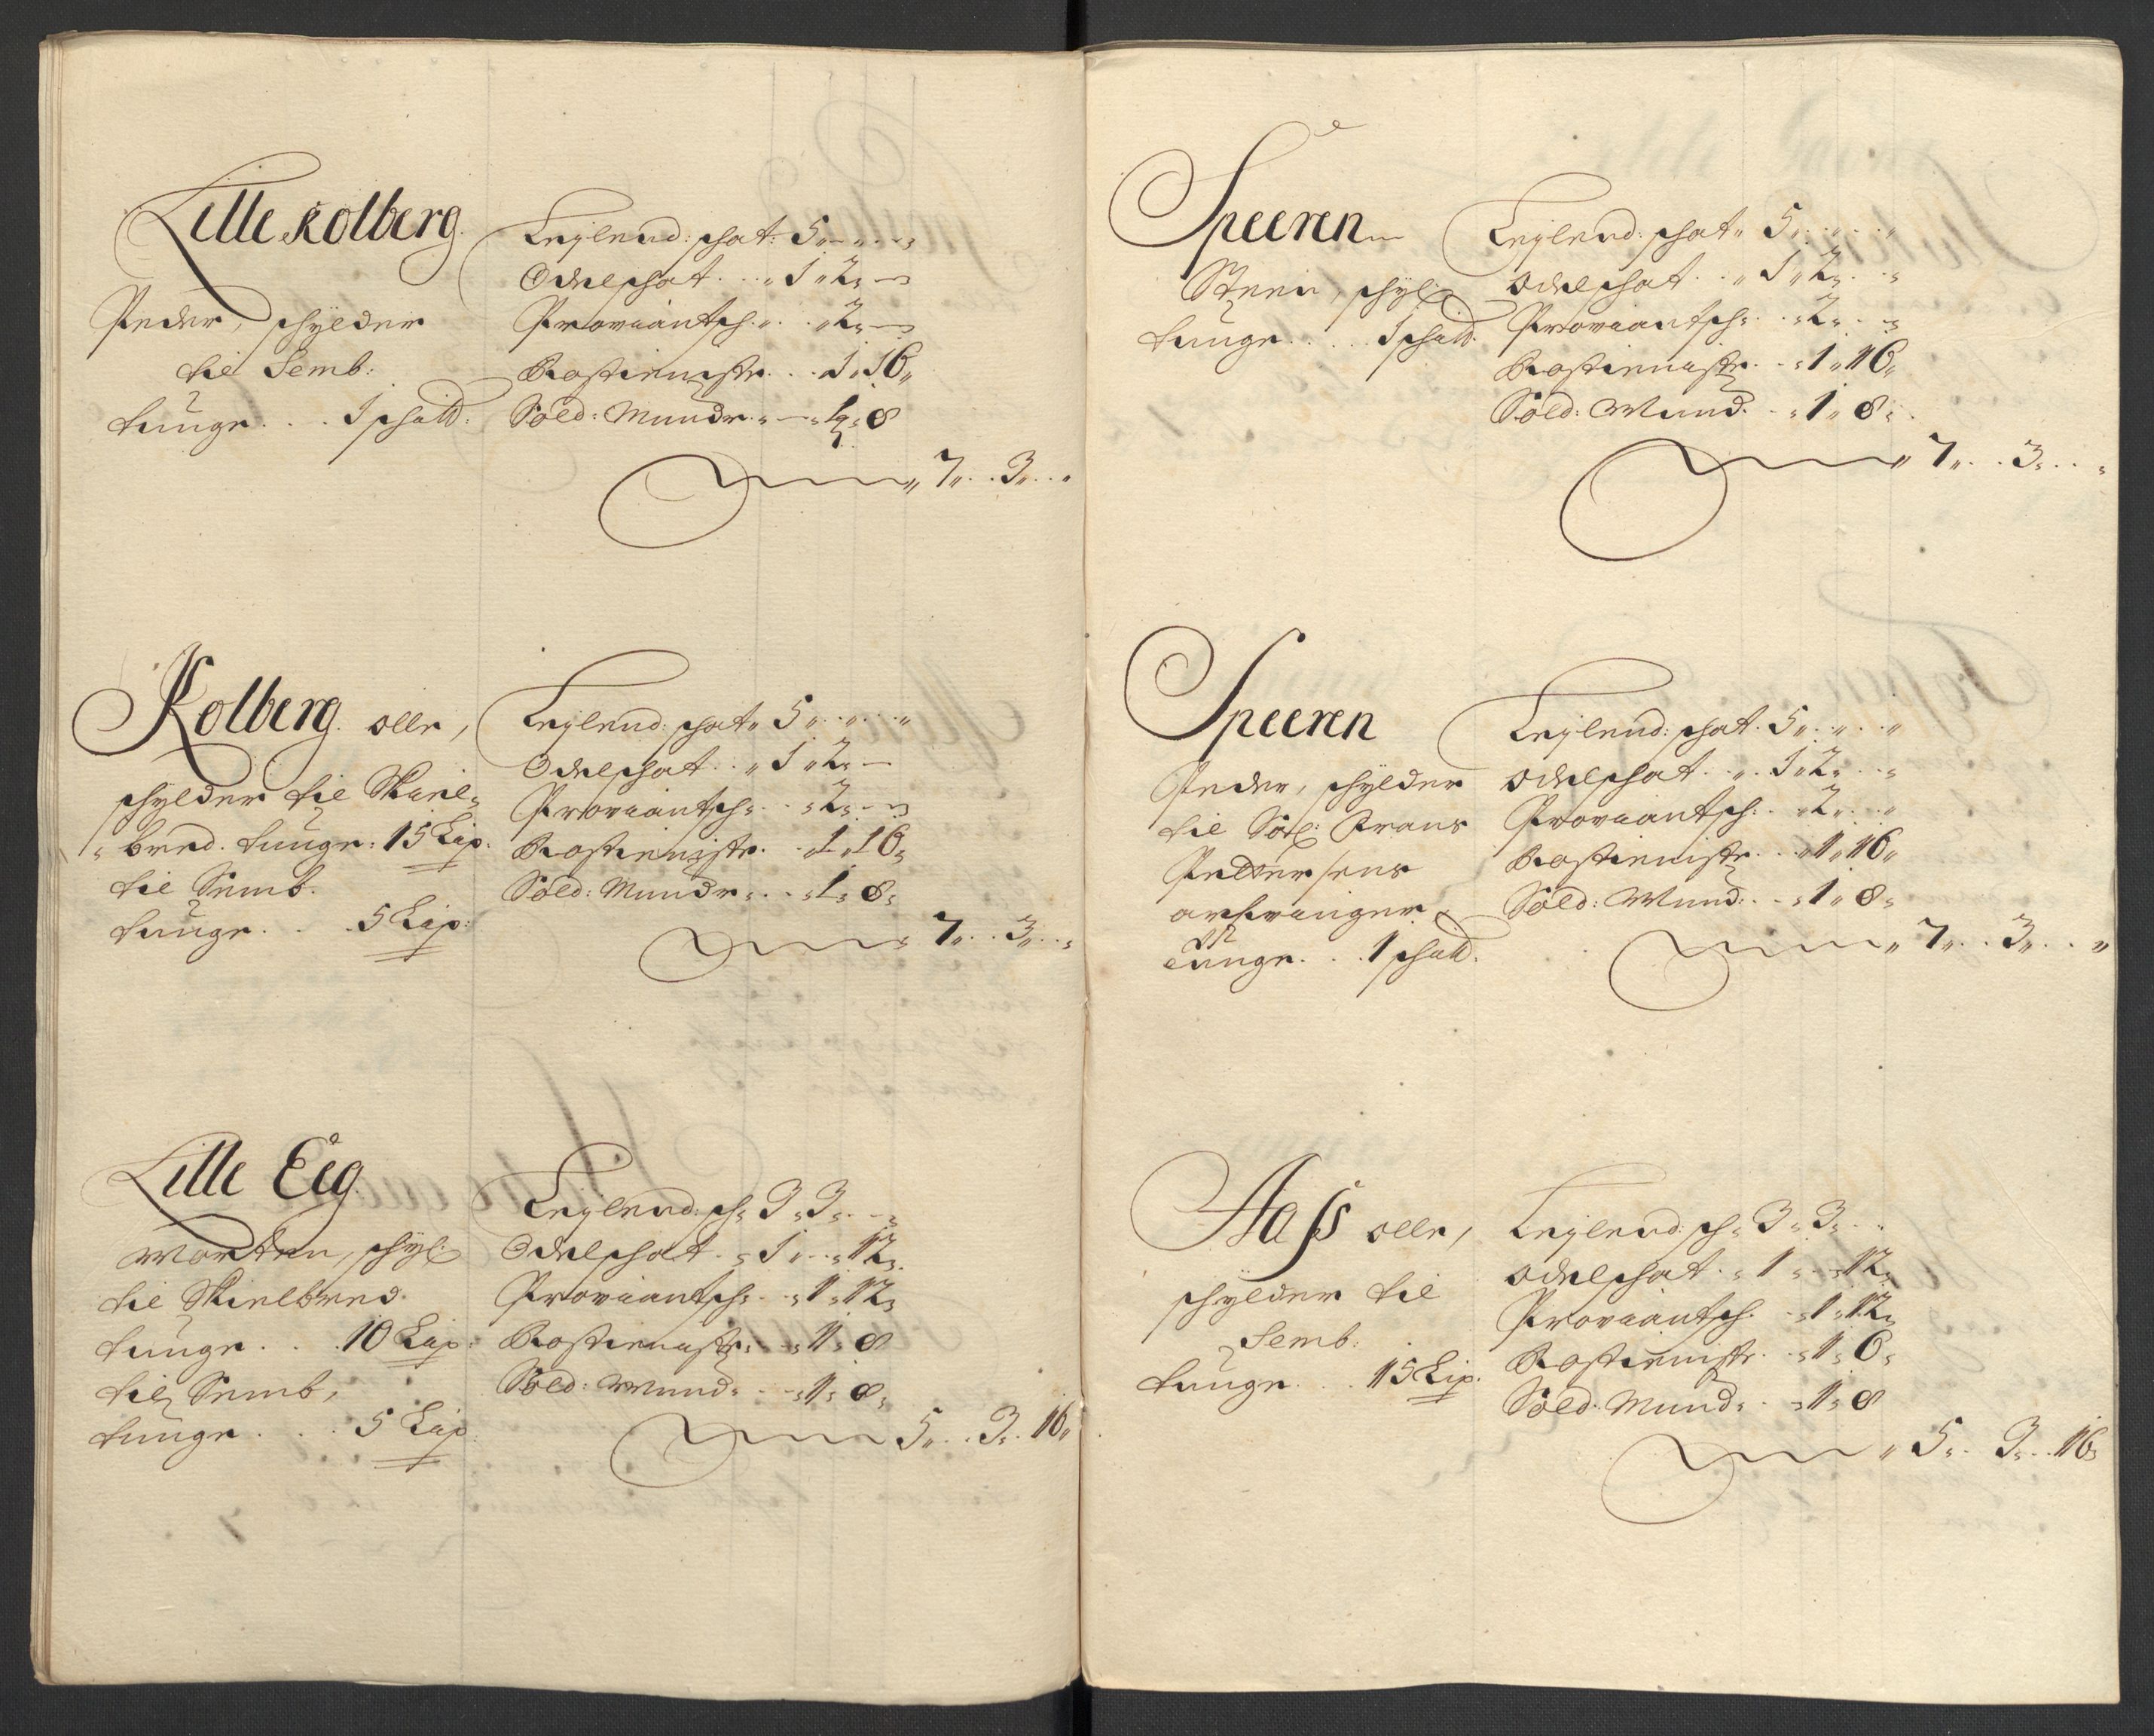 Lille Kolberg.
Peder, schylder
til Semb:
tunge . . . 1 schald:
Leylend: schat: 5 „ – „ – „
Odelschat . . „ 1 „ 2 „ –
Proviantsch „ . „ 2 „ –
Rostienistr. . . 1 „ 16 „
Sold: Mundr „ – „ 1 „ 8
„ 7 „ . . 3 „ . . „
Kolberg. olle,
schylder til Skiel„
„bred. tunge: 15 Lisp.
til Semb.
tunge. . . 5 Lisp:
Leylend: schat „ 5 „ . „ . . „
Odelschat . . „ 1 „ 2 „ –
Proviantsch „ . . „ 2 „ –
Rostienistr. . „ 1 „ 16 „
Sold: Mundr „ . . „ 1 „ 8 „
„ 7 „ . . 3 „ . . „
Lille Eig.
Morten, schyl:
til Skielbred.
tunge . . . 10 Lisp:
til Semb,
tunge . . . 5 Lisp.
Leylend: sch „ 3 „ 3 „ . . „
Odelschat . „ 1 „ . . 12 „
Proviantsch „ . „ 1 „ 12 „
Rostienistr „ . „ 1 „ 8
Sold: Mund „ . . „ 1 „ 8 „
5 „ . . 3 „ . 16 „
Speeren
Steen, schyl:
tunge . . . . 1 schald.
Leylend: schat „ 5 „ . . „ . . „
Odelschat . . „ 1 „ 2 „ . . „
Proviantsch „ . . „ 2 „ . . „
Rostienistr. . „ 1 „ 16 „
Sold: Mund. . „ 1 „ 8 „ .
„ 7 „ . . 3 „ . . „
Speeren
Peder, schylder
til Sal: Frans
Pedersens
arfvinger,
tunge. . . 1 schald.
Leylend: schat. 5 „ . „ . . „
Odelschat . . „ . 1 „ 2 „ . . „
Proviantsch: . „ 2 „ . . „
Rostienistr. . . „ 1 „ 16 „
Sold: Mund: . . „ 1 „ 8 „
„ 7 „ . . 3 „ . . „
Aass olle,
schylder til
Semb:
tunge. . . 15 Lisp.
Leylend: sch „ 3 „ 3 „ . . .
Odelschat . „ 1 „ . . 12 „
Proviantsch. . „ 1 „ 12 „
Rostienistr. . „ 1 „ 8 „
Sold: Mund „ . „ 1 „ 8
„ 5 „ . . 3 „ . . 16 „